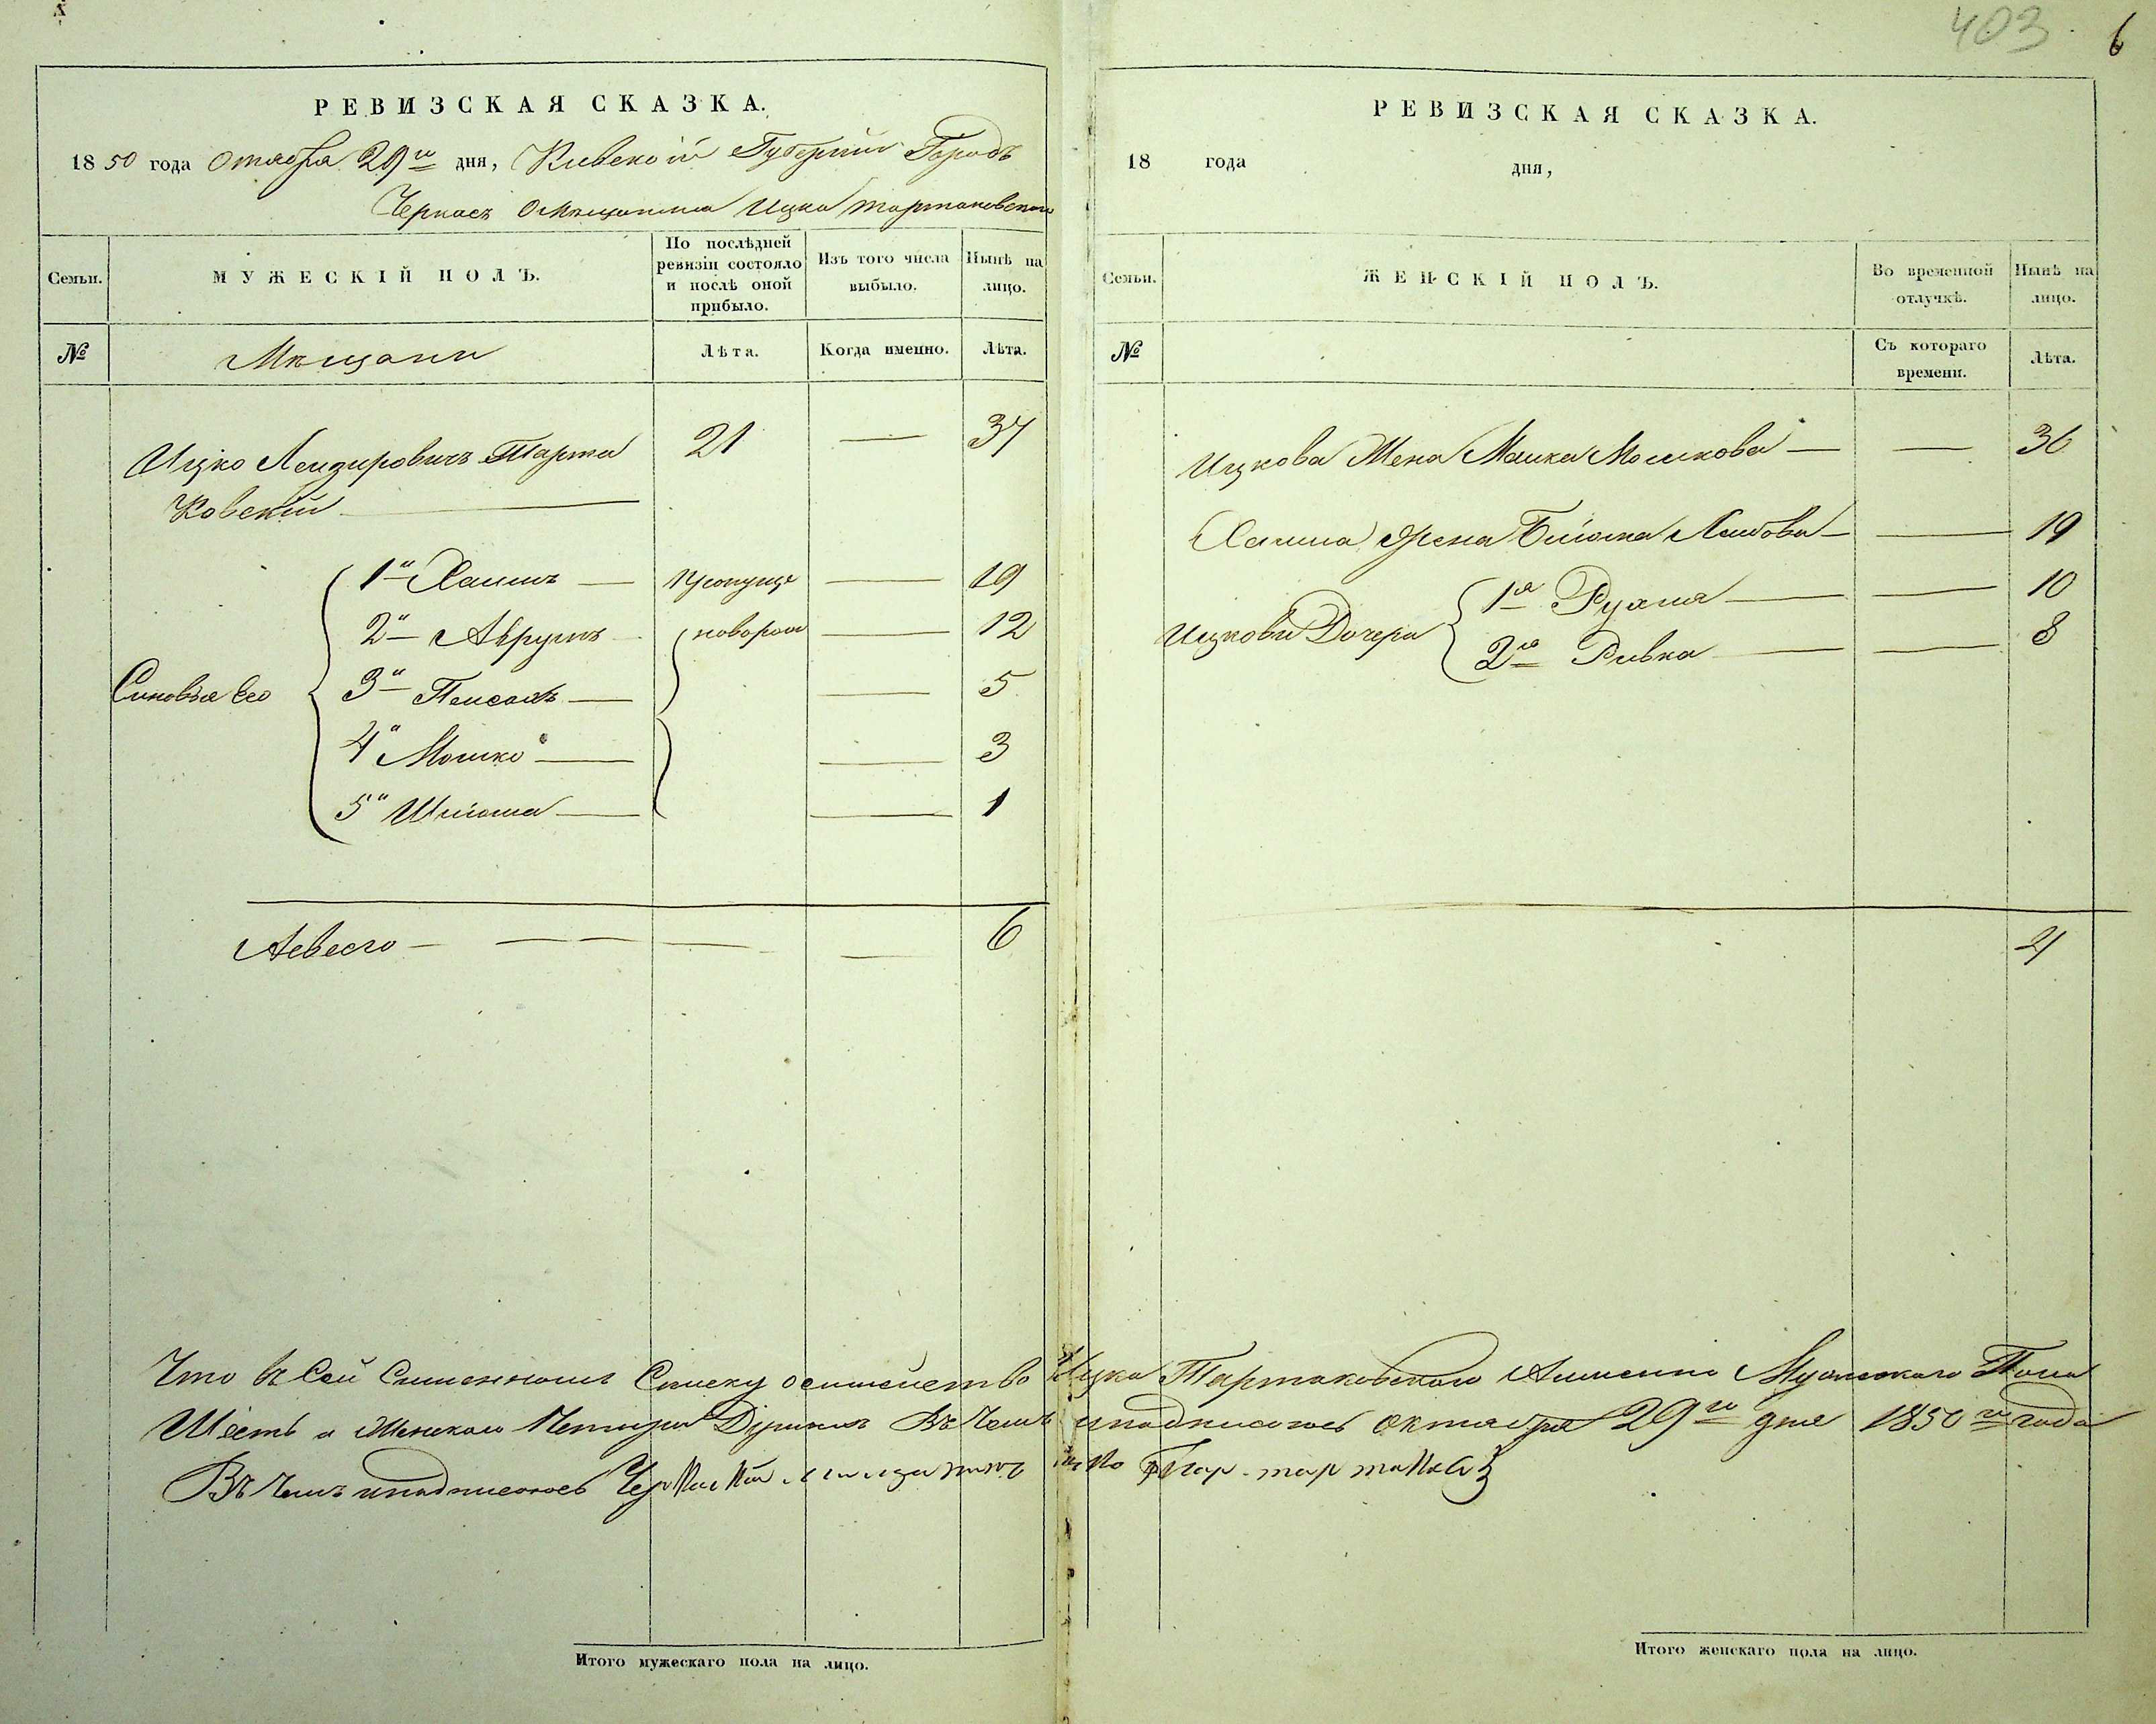 403
6
РЕВИЗСКАЯ СКАЗКА.
1850 года Октября 29го дня, Киевской Губернии Городъ
Черкасъ Омещанина Ицка Тартаковского
Семьи.
МУЖЕСКІЙ ПОЛЪ.
По послѣдней ревизіи состояло и послѣ оной прибыло.
Изъ того числа выбыло.
Нынѣ на лицо.
№
Мещани
Лѣта.
Когда именно.
Лѣта.
Ицко Лейзировичъ Тарта
21 — 37
Ковский
Синовья Его
1й Хаимъ — пропуще — 19
2й Аврумъ новорож — 12
3й Пейсахъ — 5
4й Мошко — 3
5й — 1
Авсего — 6
Что въ Сей Списку осемействе Ицка Тартаковского Аименно Мужеского Пола
Шесть а Женского Четыри Въ Чемъ иподписоюсь октября 29го дня 1850го года
Въ Чемъ иподписоюсь
Итого мужескаго пола на лицо.
РЕВИЗСКАЯ СКАЗКА.
18 года дня,
Семьи.
ЖЕНСКІЙ ПОЛЪ.
Во временной отлучкѣ.
Нынѣ на лицо.
№
Съ котораго времени.
Лѣта.
Ицкова Жена Малка Мошкова — — 36
Хаима Жена Лейбова — — 19
Ицкови Дочери
1я Рухля — — 10
2я Ривка — — 8
4
Итого женскаго пола на лицо.